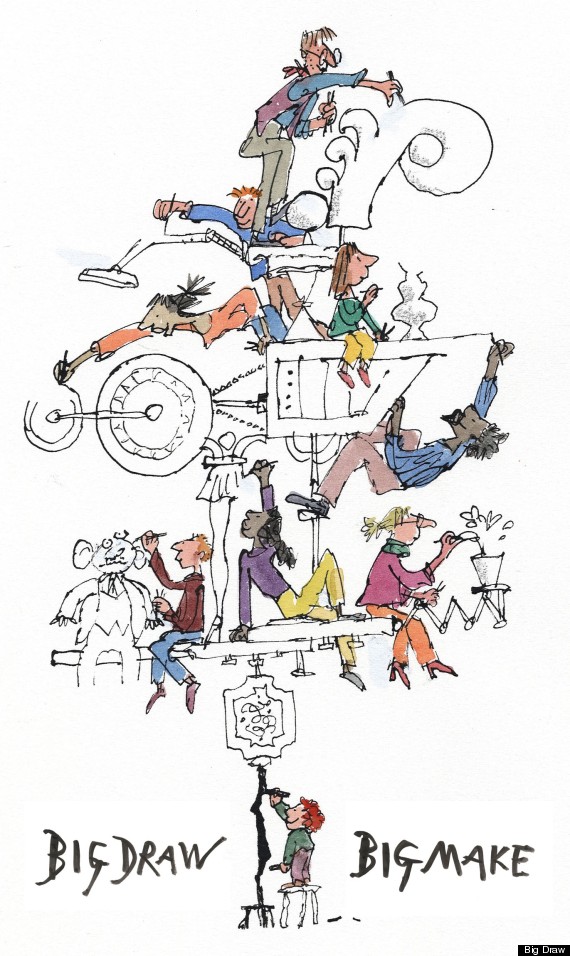 BIG DRAW
BIG MAKE
Big Draw